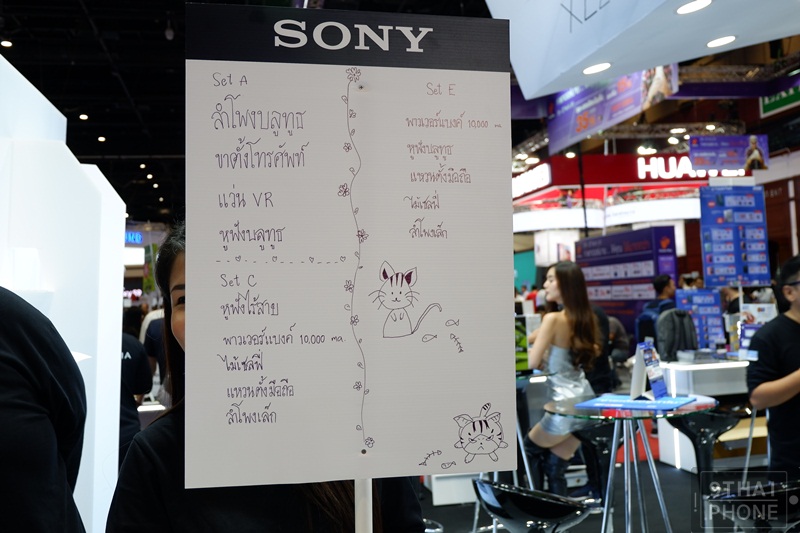 SONY
Set A
ลำโพงบลูทูธ
ขาตั้งโทรศัพท์
แว่น VR
หูฟังบลูทูธ
Set C
หูฟังไร้สาย
พาวเวอร์แบงค์ 10,000 ma.
ไม้เซลฟี่
แหวนตั้งมือถือ
ลำโพงเล็ก
Set E
พาวเวอร์แบงค์ 10,000 ma
หูฟังบลูทูธ
แหวนตั้งมือถือ
ไม้เซลฟี่
ลำโพงเล็ก
HUAWEI
9THAT
PHONE